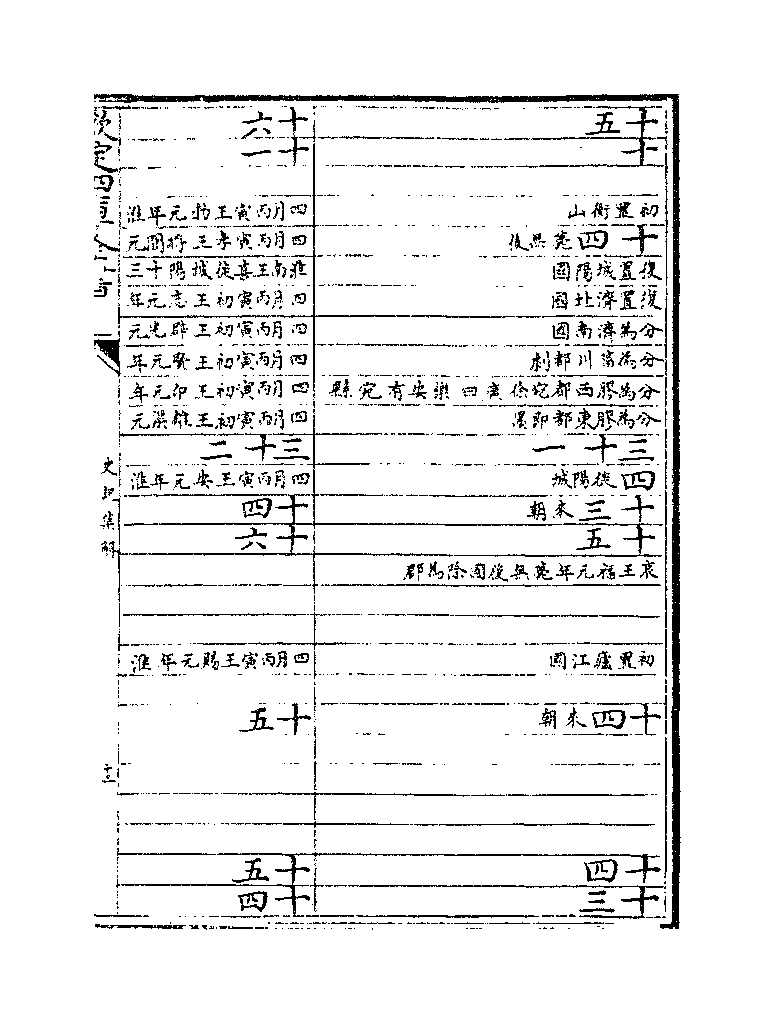 十五
十
初置衡山
十四薨無後
復置城陽國
復置濟北國
分為濟南國
分為菑川都劇
分為膠西都宛徐廣曰樂安有宛縣
分為膠東都即墨
三十一
四徙陽城
十三來朝
十五
哀王福元年薨無後國除為郡
初置廬江國
十四來朝
十四
十三
十六
十一
四月丙寅王勃元年淮
四月丙寅孝王將閭元
淮南王喜徙城陽十三
四月丙寅初王志元年
四月丙寅初王辟光元
四月丙寅初王賢元年
四月丙寅初王卬元年
四月丙寅初王雄渠元
三十二
四月丙寅王安元年淮
十四
十六
四月丙寅王賜元年淮
十五
十五
十四
欽定四庫全書
史記集解